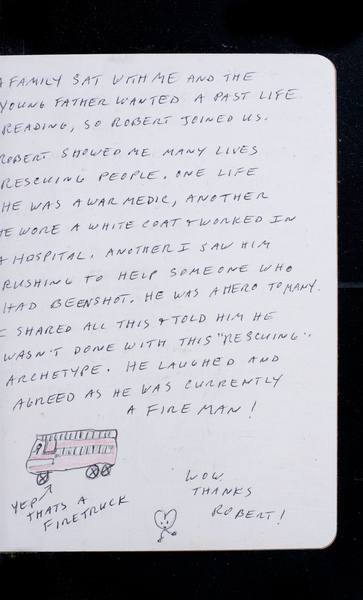 A FAMILY SAT WITH ME AND THE
YOUNG FATHER WANTED A PAST LIFE
READING, SO ROBERT JOINED US.
ROBERT SHOWED ME MANY LIVES
RESCUING PEOPLE. ONE LIFE
HE WAS A WAR MEDIC, ANOTHER
HE WORE A WHITE COAT & WORKED IN
A HOSPITAL. ANOTHER I SAW HIM
RUSHING TO HELP SOMEONE WHO
HAD BEEN SHOT. HE WAS A HERO TO MANY.
I SHARED ALL THIS & TOLD HIM HE
WASN'T DONE WITH THIS "RESCUING"
ARCHETYPE. HE LAUGHED AND
AGREED AS HE WAS CURRENTLY
A FIREMAN!
YEP
THATS A
FIRETRUCK
WOW.
THANKS
ROBERT!